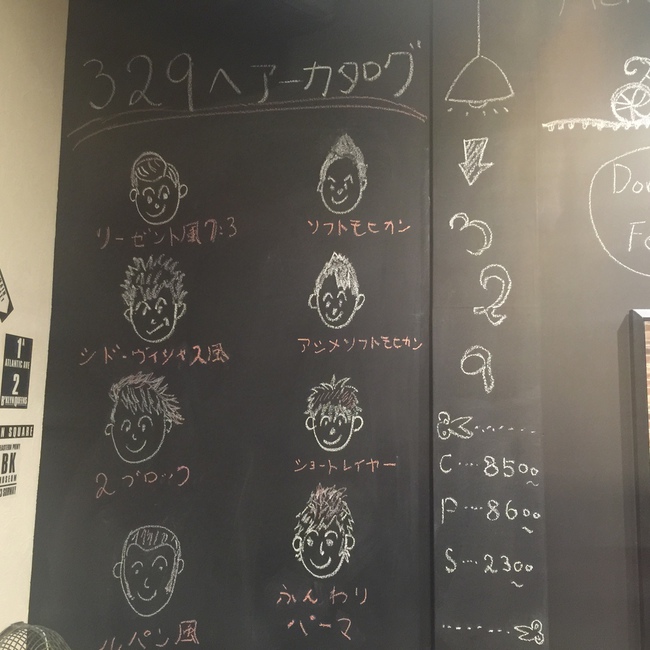 329ヘアーカタログ
リーゼント風7:3
ソフトモヒカン
シド・ヴィシャス風
アシメソフトモヒカン
2ブロック
ショートレイヤー
ルパン風
ふんわり
パーマ
3
2
9
C…8500~
P…8600~
S…2300~
1
ATLANTIC AVE
2
SQUARE
BK